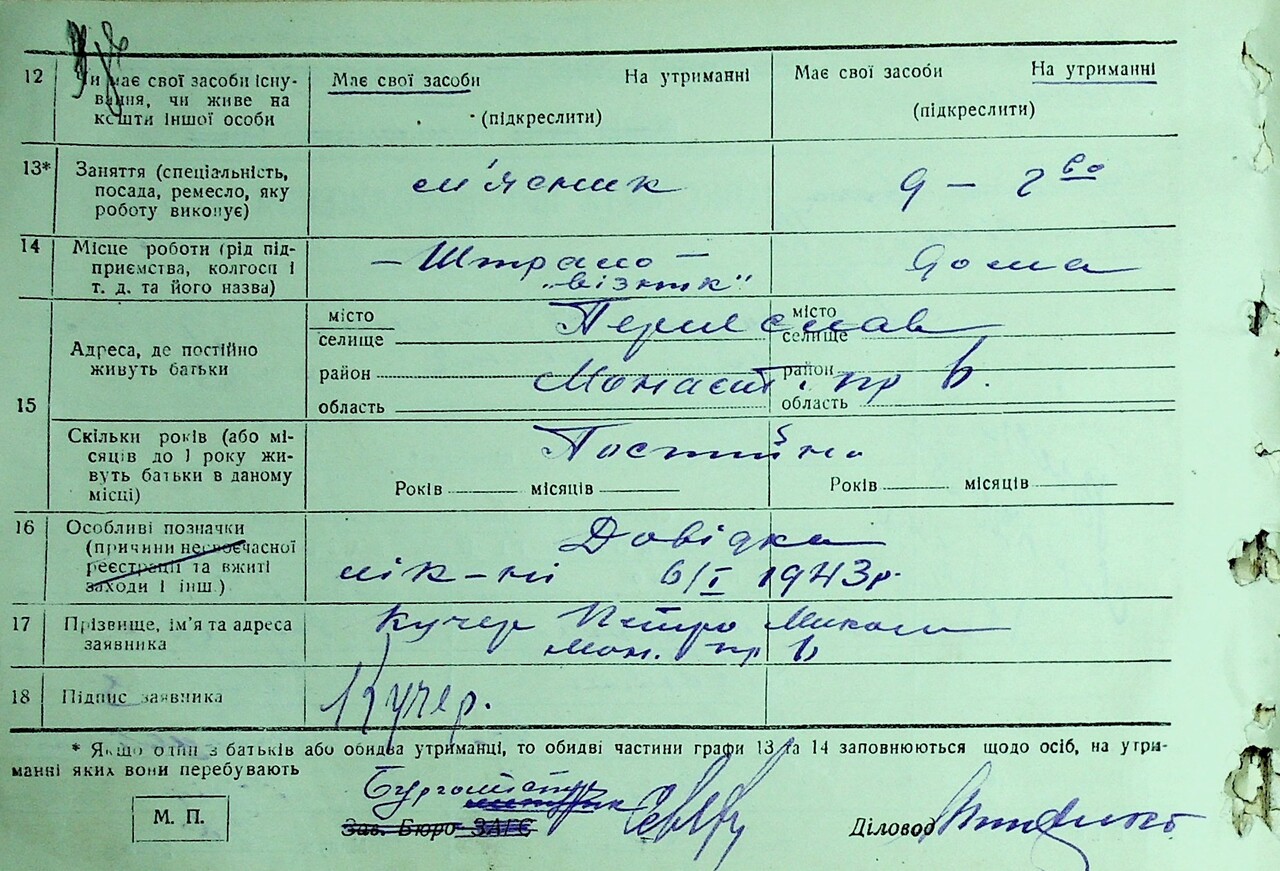 12 Чи має свої засоби існу-
вання, чи живе на
кошти іншої особи
Має свої засоби На утриманні
(підкреслити)
Має свої засоби На утриманні
(підкреслити)
13* Заняття (спеціальність,
посада, ремесло, яку
роботу виконує)
м'ясник
д – г во
14 Місце роботи (рід під-
приємства, колгосп і
т. д. та його назва)
дома
15 Адреса, де постійно
живуть батьки
місто
селище
район
область
місто
селище
район
область
Переяслав
Монаст. пр 6.
Скільки років (або мі-
сяців до 1 року жи-
вуть батьки в даному
місці)
Постійно
Років місяців
Років місяців
16 Особливі позначки
(причини несвоєчасної
реєстрації та вжиті
заходи і інш.)
Довідка
лік-ні 6/I 1943 р.
17 Прізвище, ім'я та адреса
заявника
Кучер Петро Микол
Мон. пр 6
18 Підпис заявника
Кучер.
* Якщо один з батьків або обидва утриманці, то обидві частини графи 13 та 14 заповнюються щодо осіб, на утри-
манні яких вони перебувають
М. П.
Бургомістр
Зав. Бюро ЗАГС
Діловод